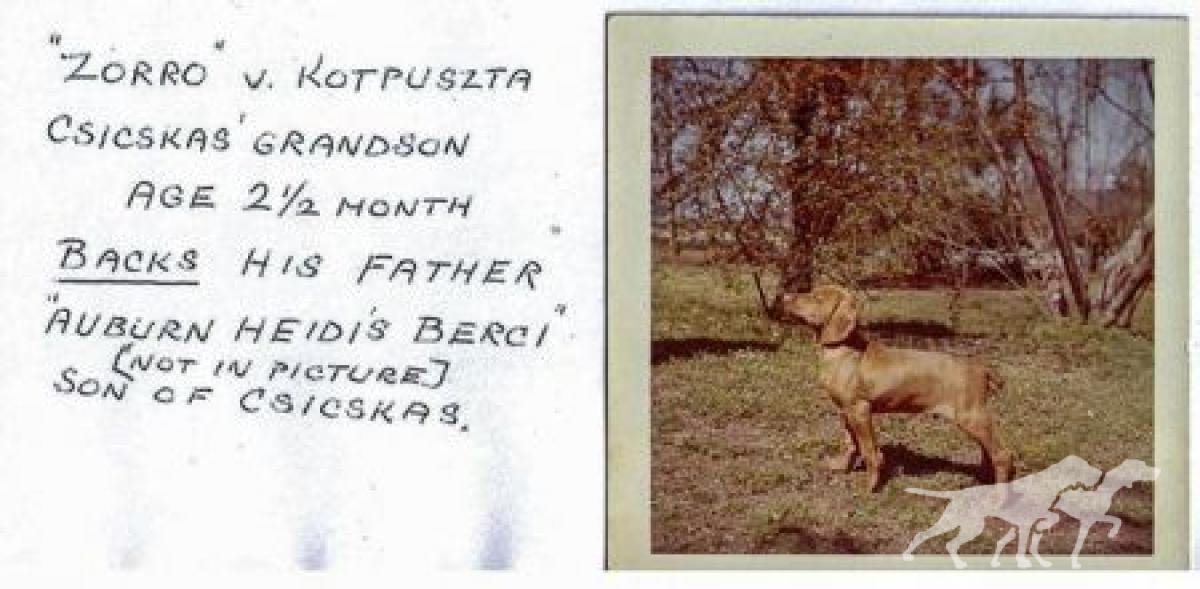 "ZORRO" v. KOTPUSZTA
CSICSKAS' GRANDSON
AGE 2 1/2 MONTH
BACKS HIS FATHER
"AUBURN HEIDI'S BERCI"
[NOT IN PICTURE]
SON OF CSICSKAS.